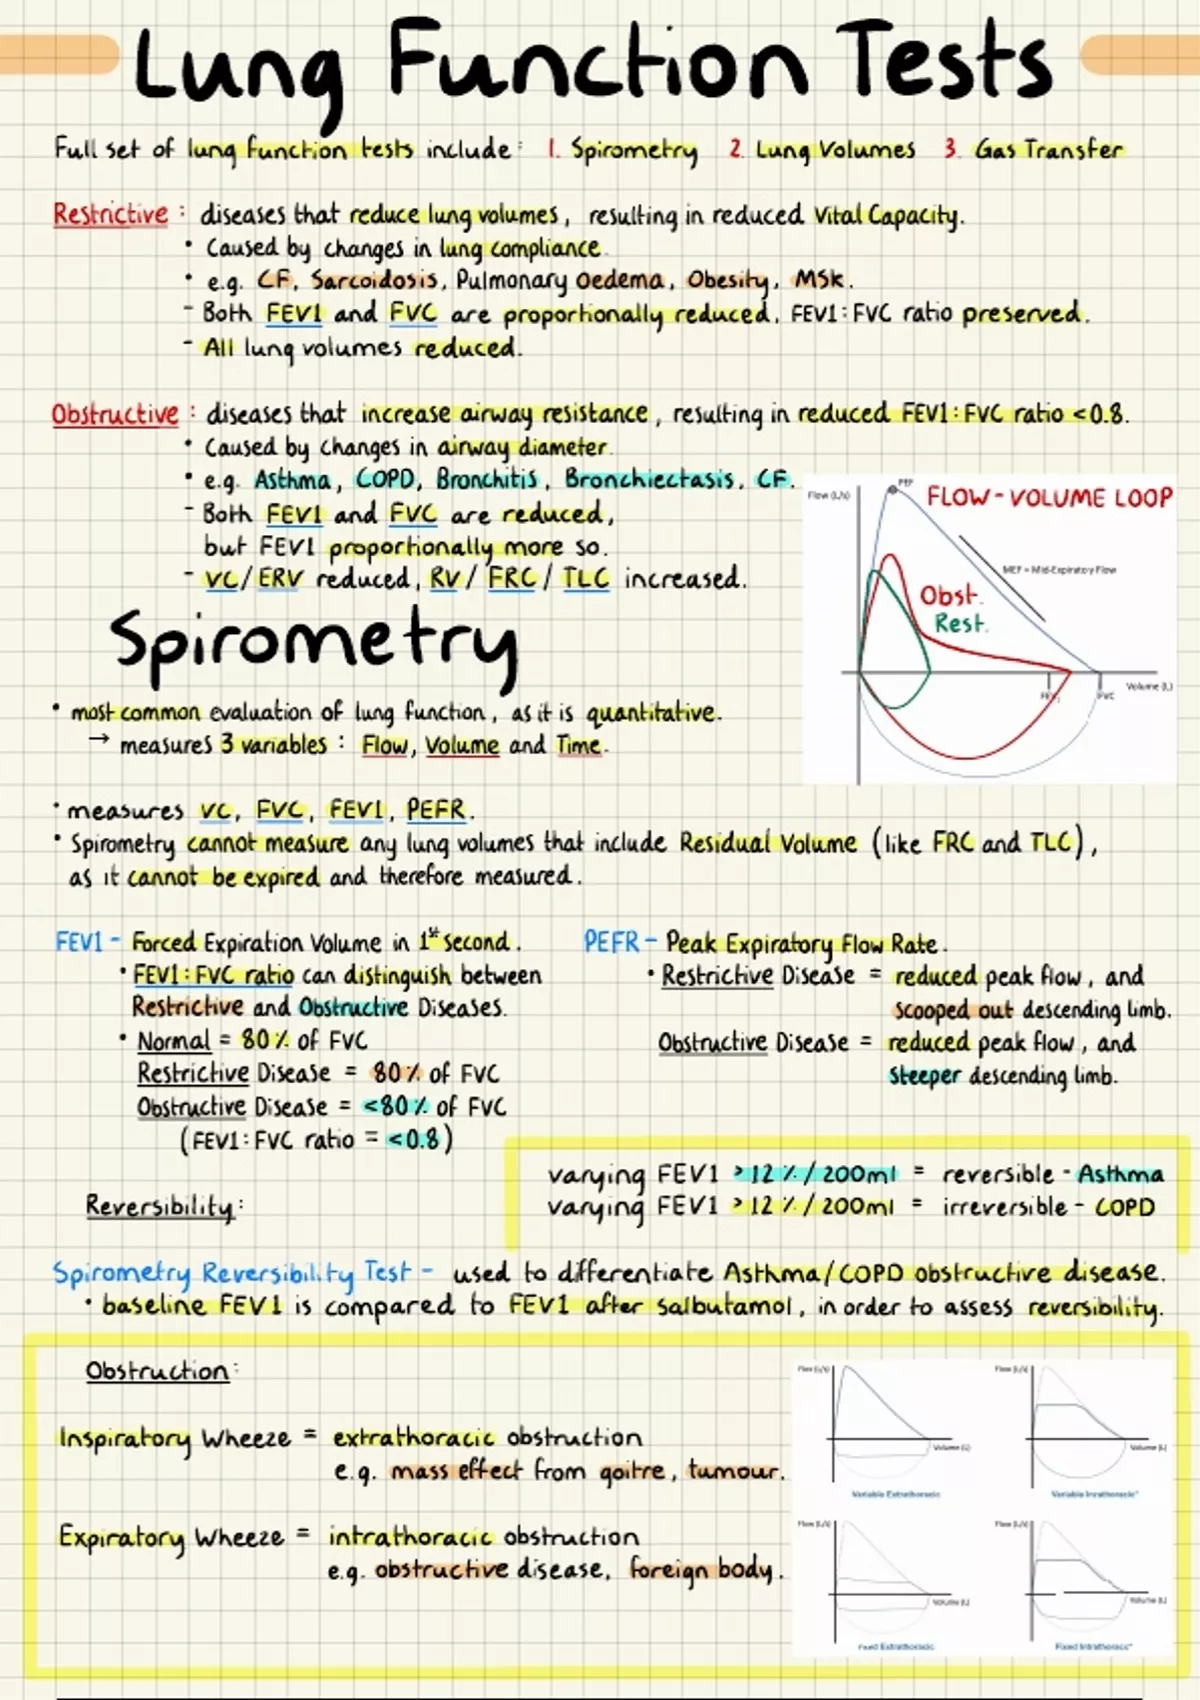 Lung Function Tests
Full set of lung function tests include: 1. Spirometry 2. Lung Volumes 3. Gas Transfer
Restrictive: diseases that reduce lung volumes, resulting in reduced Vital Capacity.
• Caused by changes in lung compliance.
• e.g. CF, Sarcoidosis, Pulmonary Oedema, Obesity, MSK.
- Both FEV1 and FVC are proportionally reduced, FEV1:FVC ratio preserved.
- All lung volumes reduced.
Obstructive: diseases that increase airway resistance, resulting in reduced FEV1:FVC ratio <0.8.
• Caused by changes in airway diameter.
• e.g. Asthma, COPD, Bronchitis, Bronchiectasis, CF.
- Both FEV1 and FVC are reduced,
but FEV1 proportionally more so.
- VC/ERV reduced, RV/FRC/TLC increased.
Flow (L/s)
PEF
FLOW-VOLUME LOOP
MEF = Mid-Expiratory Flow
Obst.
Rest.
FEV1
FVC
Volume (L)
Spirometry
• most common evaluation of lung function, as it is quantitative.
→ measures 3 variables: Flow, Volume and Time.
• measures VC, FVC, FEV1, PEFR.
• Spirometry cannot measure any lung volumes that include Residual Volume (like FRC and TLC),
as it cannot be expired and therefore measured.
FEV1 - Forced Expiration Volume in 1st Second.
• FEV1:FVC ratio can distinguish between
Restrictive and Obstructive Diseases.
• Normal = 80% of FVC
Restrictive Disease = 80% of FVC
Obstructive Disease = <80% of FVC
(FEV1:FVC ratio = <0.8)
PEFR - Peak Expiratory Flow Rate.
• Restrictive Disease = reduced peak flow, and
scooped out descending limb.
Obstructive Disease = reduced peak flow, and
steeper descending limb.
Reversibility:
varying FEV1 >12%/200ml = reversible - Asthma
varying FEV1 >12%/200ml = irreversible - COPD
Spirometry Reversibility Test - used to differentiate Asthma/COPD obstructive disease.
• baseline FEV1 is compared to FEV1 after salbutamol, in order to assess reversibility.
Obstruction:
Inspiratory Wheeze = extrathoracic obstruction
e.g. mass effect from goitre, tumour.
Expiratory Wheeze = intrathoracic obstruction
e.g. obstructive disease, foreign body.
Flow (L/s)
Volume (L)
Variable Extrathoracic
Flow (L/s)
Volume (L)
Variable Intrathoracic*
Flow (L/s)
Volume (L)
Fixed Extrathoracic
Flow (L/s)
Volume (L)
Fixed Intrathoracic*